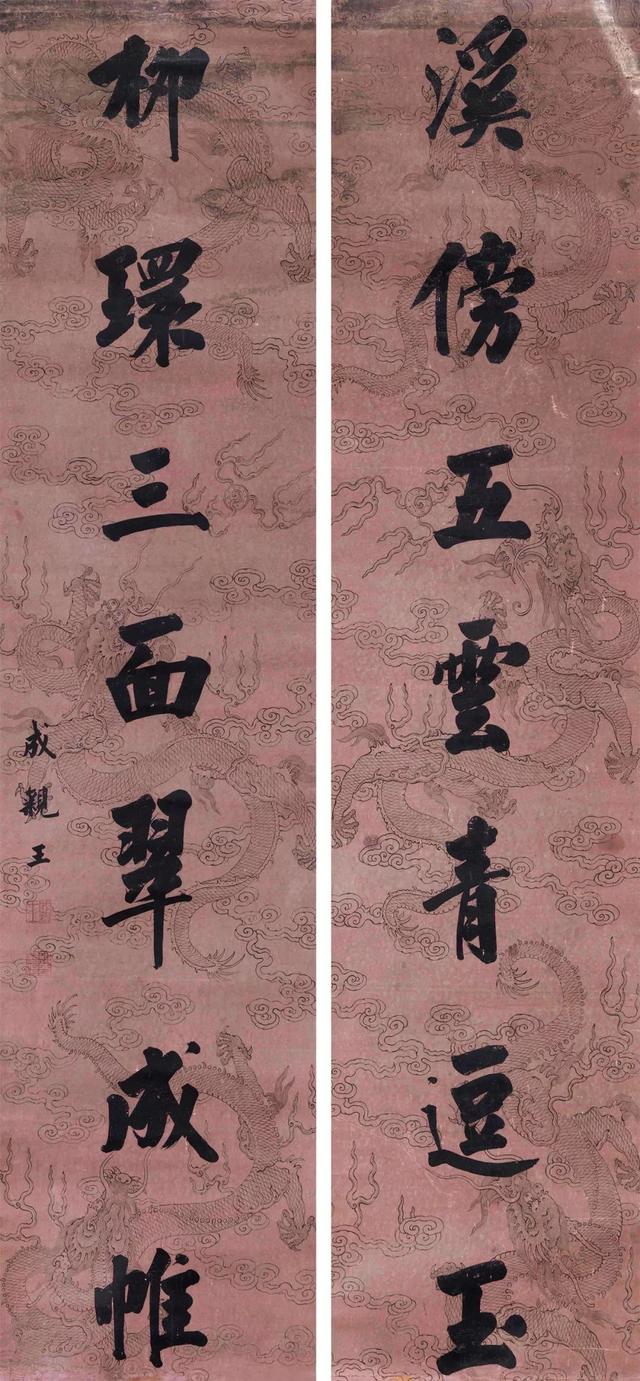 溪傍五雲青逗玉
柳環三面翠成帷
成親王